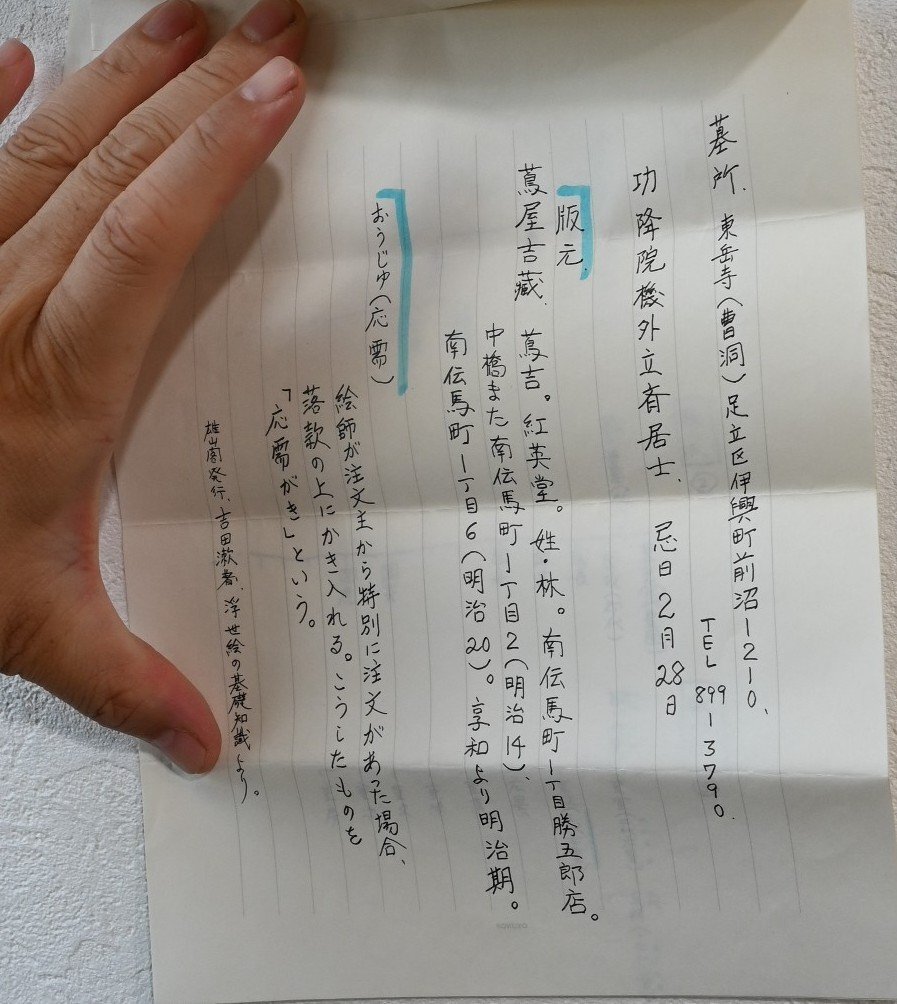 墓所、東岳寺(曹洞)足立区伊興町前沼一二一〇、
TEL 899-3790.
功降院機外立斎居士、忌日2月28日
版元、
蔦屋吉蔵、蔦吉。紅英堂。姓・林。南伝馬町一丁目勝五郎店。
中橋また南伝馬町一丁目2(明治14)、
南伝馬町一丁目6(明治20)。享和より明治期。
おうじゅ(応需)
絵師が注文主から特別に注文があった場合、
落款の上にかき入れる。こうしたものを
「応需がき」という。
雄山閣発行、吉田漱著、浮世絵の基礎知識より。
KOKUYO